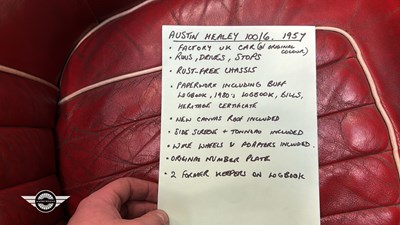 AUSTIN HEALEY 100/6, 1957
• FACTORY UK CAR (IN ORIGINAL COLOUR)
• RUNS, DRIVES, STOPS
• RUST-FREE CHASSIS
• PAPERWORK INCLUDING BUFF
LOGBOOK, 1980'S LOGBOOK, BILLS,
HERITAGE CERTIFICATE
• NEW CANVAS ROOF INCLUDED
• SIDE SCREENS + TONNEAU INCLUDED
• WIRE WHEELS & ADAPTERS INCLUDED.
• ORIGINAL NUMBER PLATE
• 2 FORMER KEEPERS ON LOGBOOK